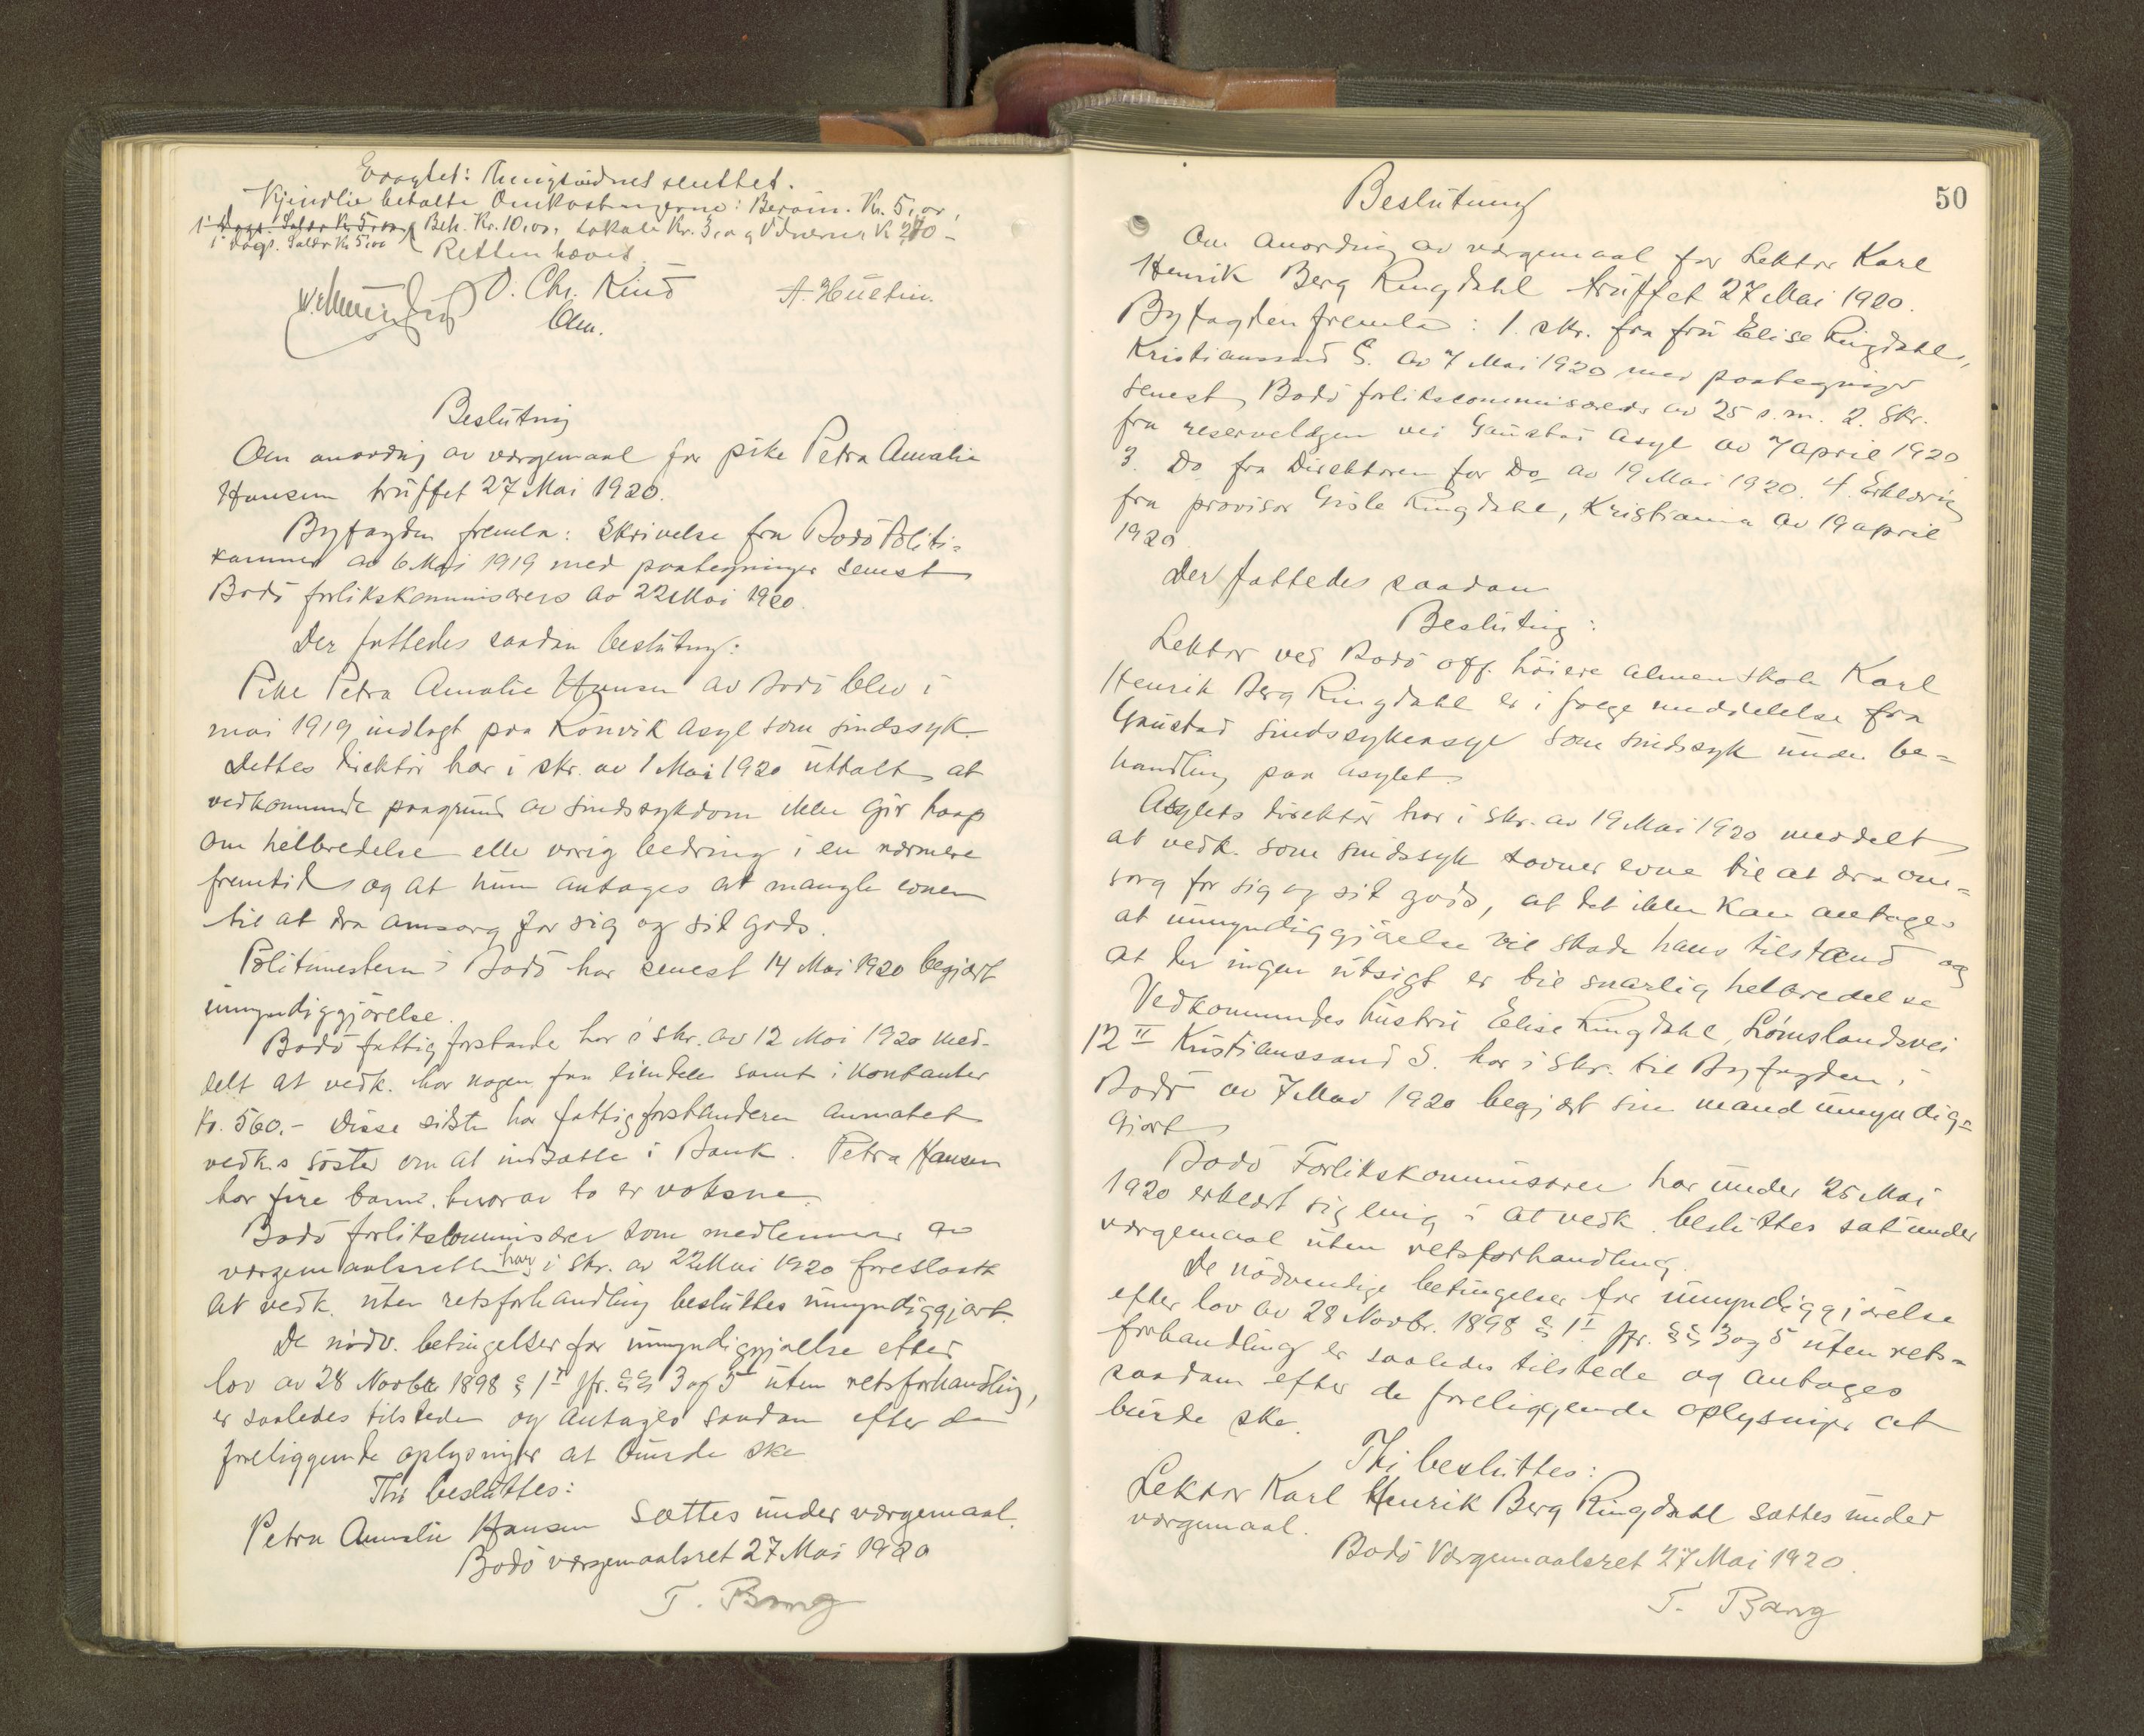 Kjendlie betalte Omkostningerne: Beram. Kr. 5,00,
1 Dags. Saldr Kr 5,00 Beh. Kr. 10,00, Lokale Kr. 3,00 og Vidnerne K 2,70 -
1 Dags. Saldr Kr 5,00 Retten hævet.
O. Chr. Rind A. Hustin.
Olsen.
Beslutning
Om anordnig av værgemaal for pike Petra Amalie
Hansen truffet 27 Mai 1920.
Byfogden fremla: Skrivelse fra Bodö Politi-
kammer av 6 Mai 1919 med paategninger senest
Bodö forlikskommisærers av 22 Mai 1920.
Der fattedes saadan beslutning:
Pike Petra Amalie Hansen av Bodö blev i
mai 1919 indlagt paa Rönvik Asyl som sindssyk.
Dettes direktör har i skr. av 1 Mai 1920 uttalt at
vedkommende paagrund av sindssykdom ikke gir haap
om helbredelse eller varig bedring i en nærmere
fremtid og at hun antages at mangle evnen
til at dra omsorg for sig og sit gods.
Politimesteren i Bodö har senest 14 Mai 1920 begjært
umyndiggjørelse.
Bodö fattigforstander har i skr. av 12 Mai 1920 med-
delt at vedk. har nogen faa eiendele samt i kontanter
Kr. 560.- Disse sidste har fattigforstanderen anmodet
vedk.s söster om at indsætte i Bank. Petra Hansen
har fire barn, hvorav to er voksne.
Bodö forlikskommisærer som medlemmer av
værgemaalsretten har i skr. av 22 Mai 1920 foreslaat
at vedk. uten retsforhandling besluttes umyndiggjort.
De nödv. betingelser for umyndiggjørelse efter
lov av 28 Novbr 1898 § 1ᴵ jfr. §§ 3 og 5 uten retsforhandling,
er saaledes tilstede og antages saadan efter de
foreliggende oplysninger at burde ske
Thi besluttes:
Petra Amalie Hansen sættes under værgemaal.
Bodö værgemaalsret 27 Mai 1920
T. Bang
50
Beslutning
Om anordnig av værgemaal for Lektor Karl
Henrik Berg Ringdahl truffet 27 Mai 1920.
Byfogden fremla: 1. skr. fra fru Elise Ringdahl,
Kristianssand S. av 7 Mai 1920 med paategninger
senest Bodö forlikscommisærers av 25 s.m. 2. Skr.
fra reservelægen ved Gaustad Asyl av 7 april 1920
3. Do fra Direktøren for Do av 19 Mai 1920. 4. Erklæring
fra provisor Gisle Ringdahl, Kristiania av 19 april
1920
Der fattedes saadan
Beslutnig:
Lektor ved Bodö off. höiere almenskole Karl
Henrik Berg Ringdahl er i følge meddelelse fra
Gaustad Sindssykeasyl som sindssyk under be-
handling paa Asylet.
Asylets direktör har i skr. av 19 Mai 1920 meddelt
at vedk. som sindssyk savner evne til at dra om-
sorg for sig og sit gods, at det ikke kan antages
at umyndiggjørelse vil skade hans tilstand og
at der ingen utsigt er til snarlig helbredelse
Vedkommendes hustru Elise Ringdahl, Lømslandsvei
12 II Kristianssand S. har i skr. til Byfogden i
Bodö av 7 Mai 1920 begjært sin mand umyndig-
gjort
Bodö Forlikskommisærer har under 25 Mai
1920 erklært sig enig i at vedk. besluttes sat under
værgemaal uten retsforhandling.
De nödvendige betingelser for umyndiggjørelse
efter lov av 28 Novbr. 1898 § 1ᴵ jfr. §§ 3 og 5 uten rets-
forhandling er saaledes tilstede og antages
saadan efter de foreliggende oplysninger at
burde ske.
Thi besluttes:
Lektor Karl Henrik Berg Ringdahl sættes under
værgemaal.
Bodö Værgemaalsret 27 Mai 1920.
T. Bang